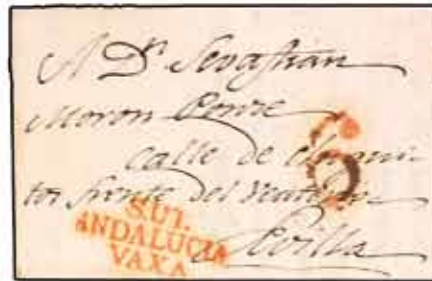 A Dn. Sevastian
Moron Ponze
calle de
tos frente del
S.U1.
ANDALUCIA
VAXA
Sevilla
6